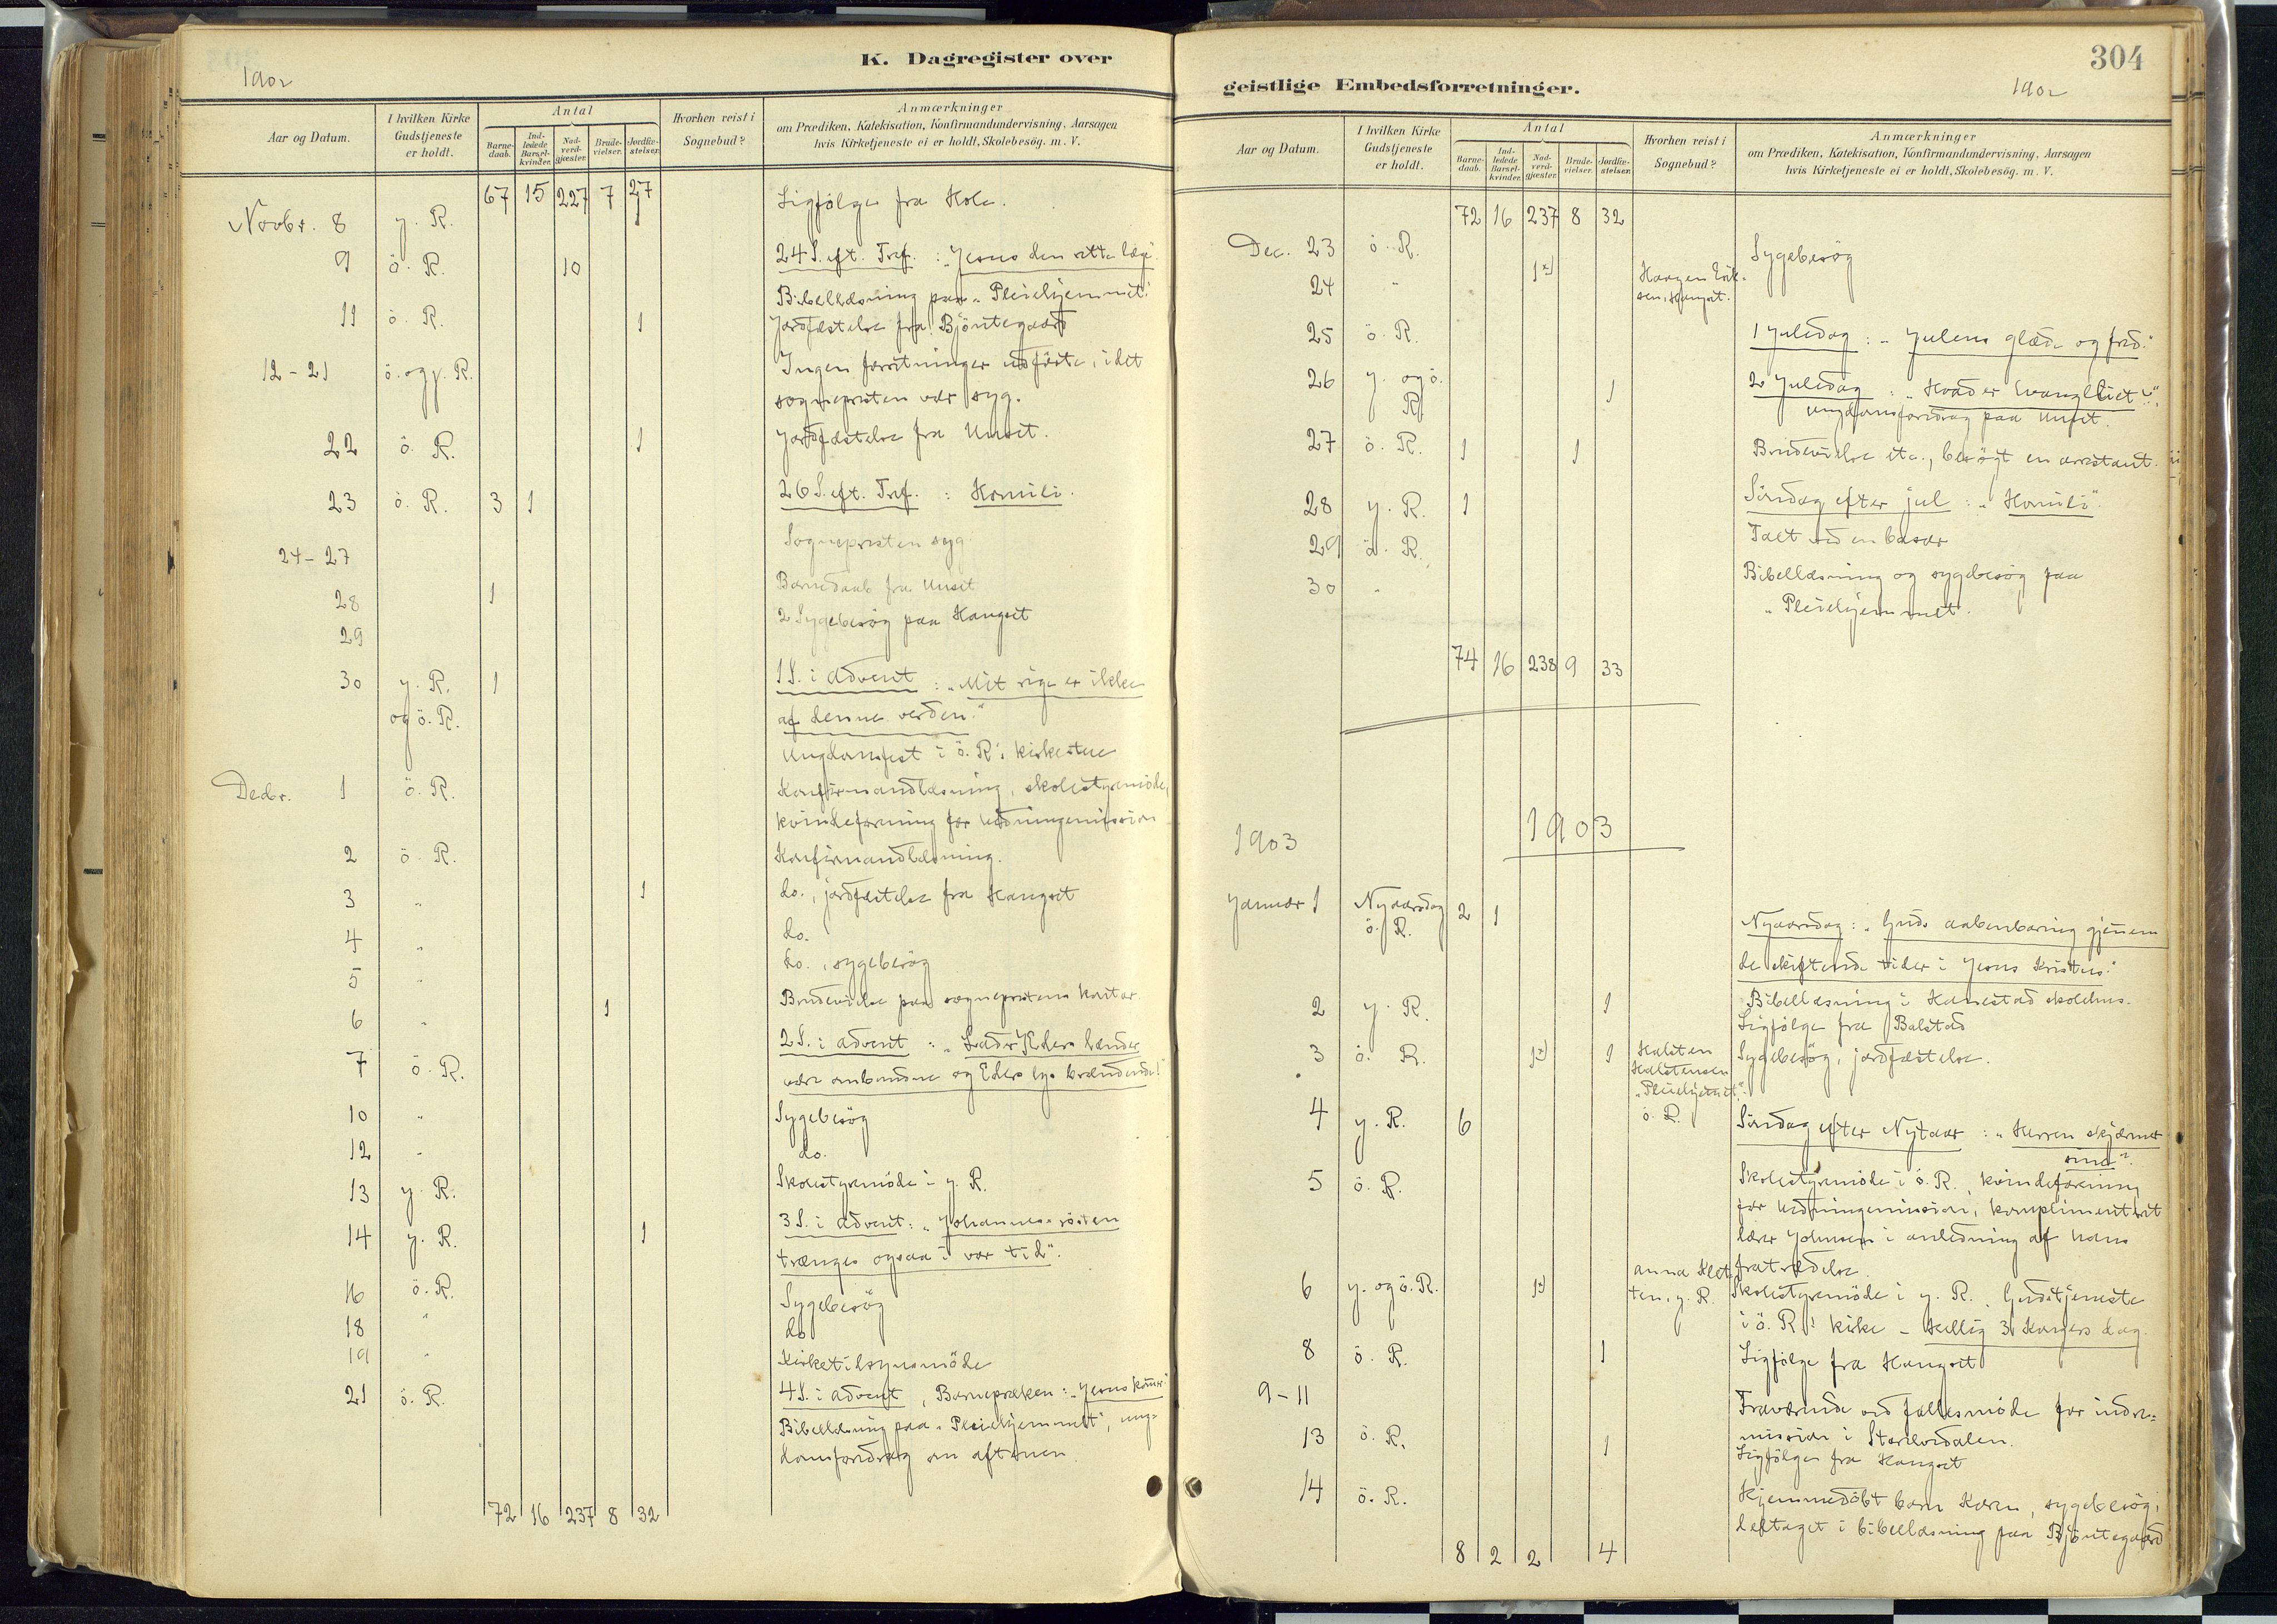 K. Dagregister over
1902
Aar og Datum.
I hvilken Kirke
Gudstjeneste
er holdt.
Antal
Barne-
daab.
Ind-
ledede
Barsel-
kvinder.
Nad-
verd-
gjæster.
Brude-
vielser.
Jordfæ-
stelser.
Hvorhen reist i
Sognebud?
Anmærkninger
om Prædiken, Katekisation, Konfirmandundervisning, Aarsagen
hvis Kirketjeneste ei er holdt, Skolebesög. m. V.
67 15 227 7 27
Novbr. 8 y. R. 1 Ligfölge fra Hole.
9 ö. R. 10 24 S. eft. Tref. : "Jesus den rette læge".
Bibellæsning paa "Pleiehjemmet".
11 ö. R. 1 Jordfæstelse fra Bjöntegaard
12 - 21 ö. og y. R. Ingen forretninger udförte, idet
sognepresten var syg.
22 ö. R. 1 Jordfæstelse fra Unset.
23 ö. R. 3 1 26 S. eft. Tref. : Homili.
24 - 27 Sognepresten syg
28 1 Barnedaab fra Unset
29 2 Sygebesög paa Hanget
30 y. R. 1 1 S. i advent : "Mit rige er ikke
og ö. R. af denne verden."
Ungdomsfest i ö. R.'s kirkestue
Decbr. 1 ö. R. Konfirmandlæsning, skolestyremöde,
kvindeforening for hedningemission
2 ö. R. Konfirmandlæsning.
3 " 1 do., jordfæstelse fra Hangset
4 " do.
5 " do., sygebesög
6 " 1 Brudevielse paa sogneprestens kontor
7 ö. R. 2 S. i advent : "Lader Eders lænder
være ombundne og Eders lys brændende!"
10 " Sygebesög
12 " do.
13 y. R. Skolestyremöde i y. R.
14 y. R. 1 3 S. i advent : "Johannes-rösten
trænges ogsaa i vor tid".
16 ö. R. Sygebesög
18 " do
19 " Kirketilsynsmöde
21 ö. R. 4 S. i advent, Barnepræken : "Jesus kommer"
Bibellæsning paa "Pleiehjemmet", ung-
domsforedrag om aftenen.
72 16 237 8 32
304
geistlige Embedsforretninger.
1902
Aar og Datum.
I hvilken Kirke
Gudstjeneste
er holdt.
Antal
Barne-
daab.
Ind-
ledede
Barsel-
kvinder.
Nad-
verd-
gjæster.
Brude-
vielser.
Jordfæ-
stelser.
Hvorhen reist i
Sognebud?
Anmærkninger
om Prædiken, Katekisation, Konfirmandundervisning, Aarsagen
hvis Kirketjeneste ei er holdt, Skolebesög. m. V.
72 16 237 8 32
Dec. 23 ö. R. Sygebesög
24 " 1x) Haagen Erik-
sen, Hangset.
25 ö. R. 1 Juledag : "Julens glæde og fred."
26 y. og ö. 1 2 Juledag : "Hvad er Evangeliet?"
R. Ungdomsforedrag paa Unset.
27 ö. R. 1 1 Brudevielse etc., besögt en arrestant.
28 y. R. 1 Söndag efter jul : "Homili".
29 ö. R. Talt ved en basar
30 " Bibellæsning og sygebesög paa
"Pleiehjemmet".
74 16 238 9 33
1903 1903
Januar 1 Nyaarsdag 2 1 Nyaarsdag : "Guds aabenbaring gjennem
ö. R. de skiftende tider i Jesus Kristus."
2 y. R. 1 Bibellæsning i Hanestad skolehus.
Ligfölge fra Balstad
3 ö. R. 1x) 1 Halsten Sygebesög, jordfæstelse.
Halstensen
"Pleiehjemmet".
ö. R.
4 y. R. 6 Söndag efter Nytaar : "Herren skjærmer
sine".
5 ö. R. Skolestyremöde i ö. R., kvindeforening
for hedningemission, komplimentert
lærer Johnsen i anledning af hans
fratrædelse.
6 y. og ö. R. 1x) Anna Klet-
ten, y. R. Skolestyremöde i y. R. Gudstjeneste
i ö. R.'s kirke - Hellig 3 Kongers dag.
8 ö. R. 1 Ligfölge fra Hangset
9 - 11 Fraværende ved fællesmöde for indre-
mission i Storelvdalen.
13 ö. R. 1 Ligfölge fra Hangset
14 ö. R. Hjemmedöbt barn Karen, sygebesög,
deltaget i bibellæsning paa Bjöntegaard
8 2 2 4